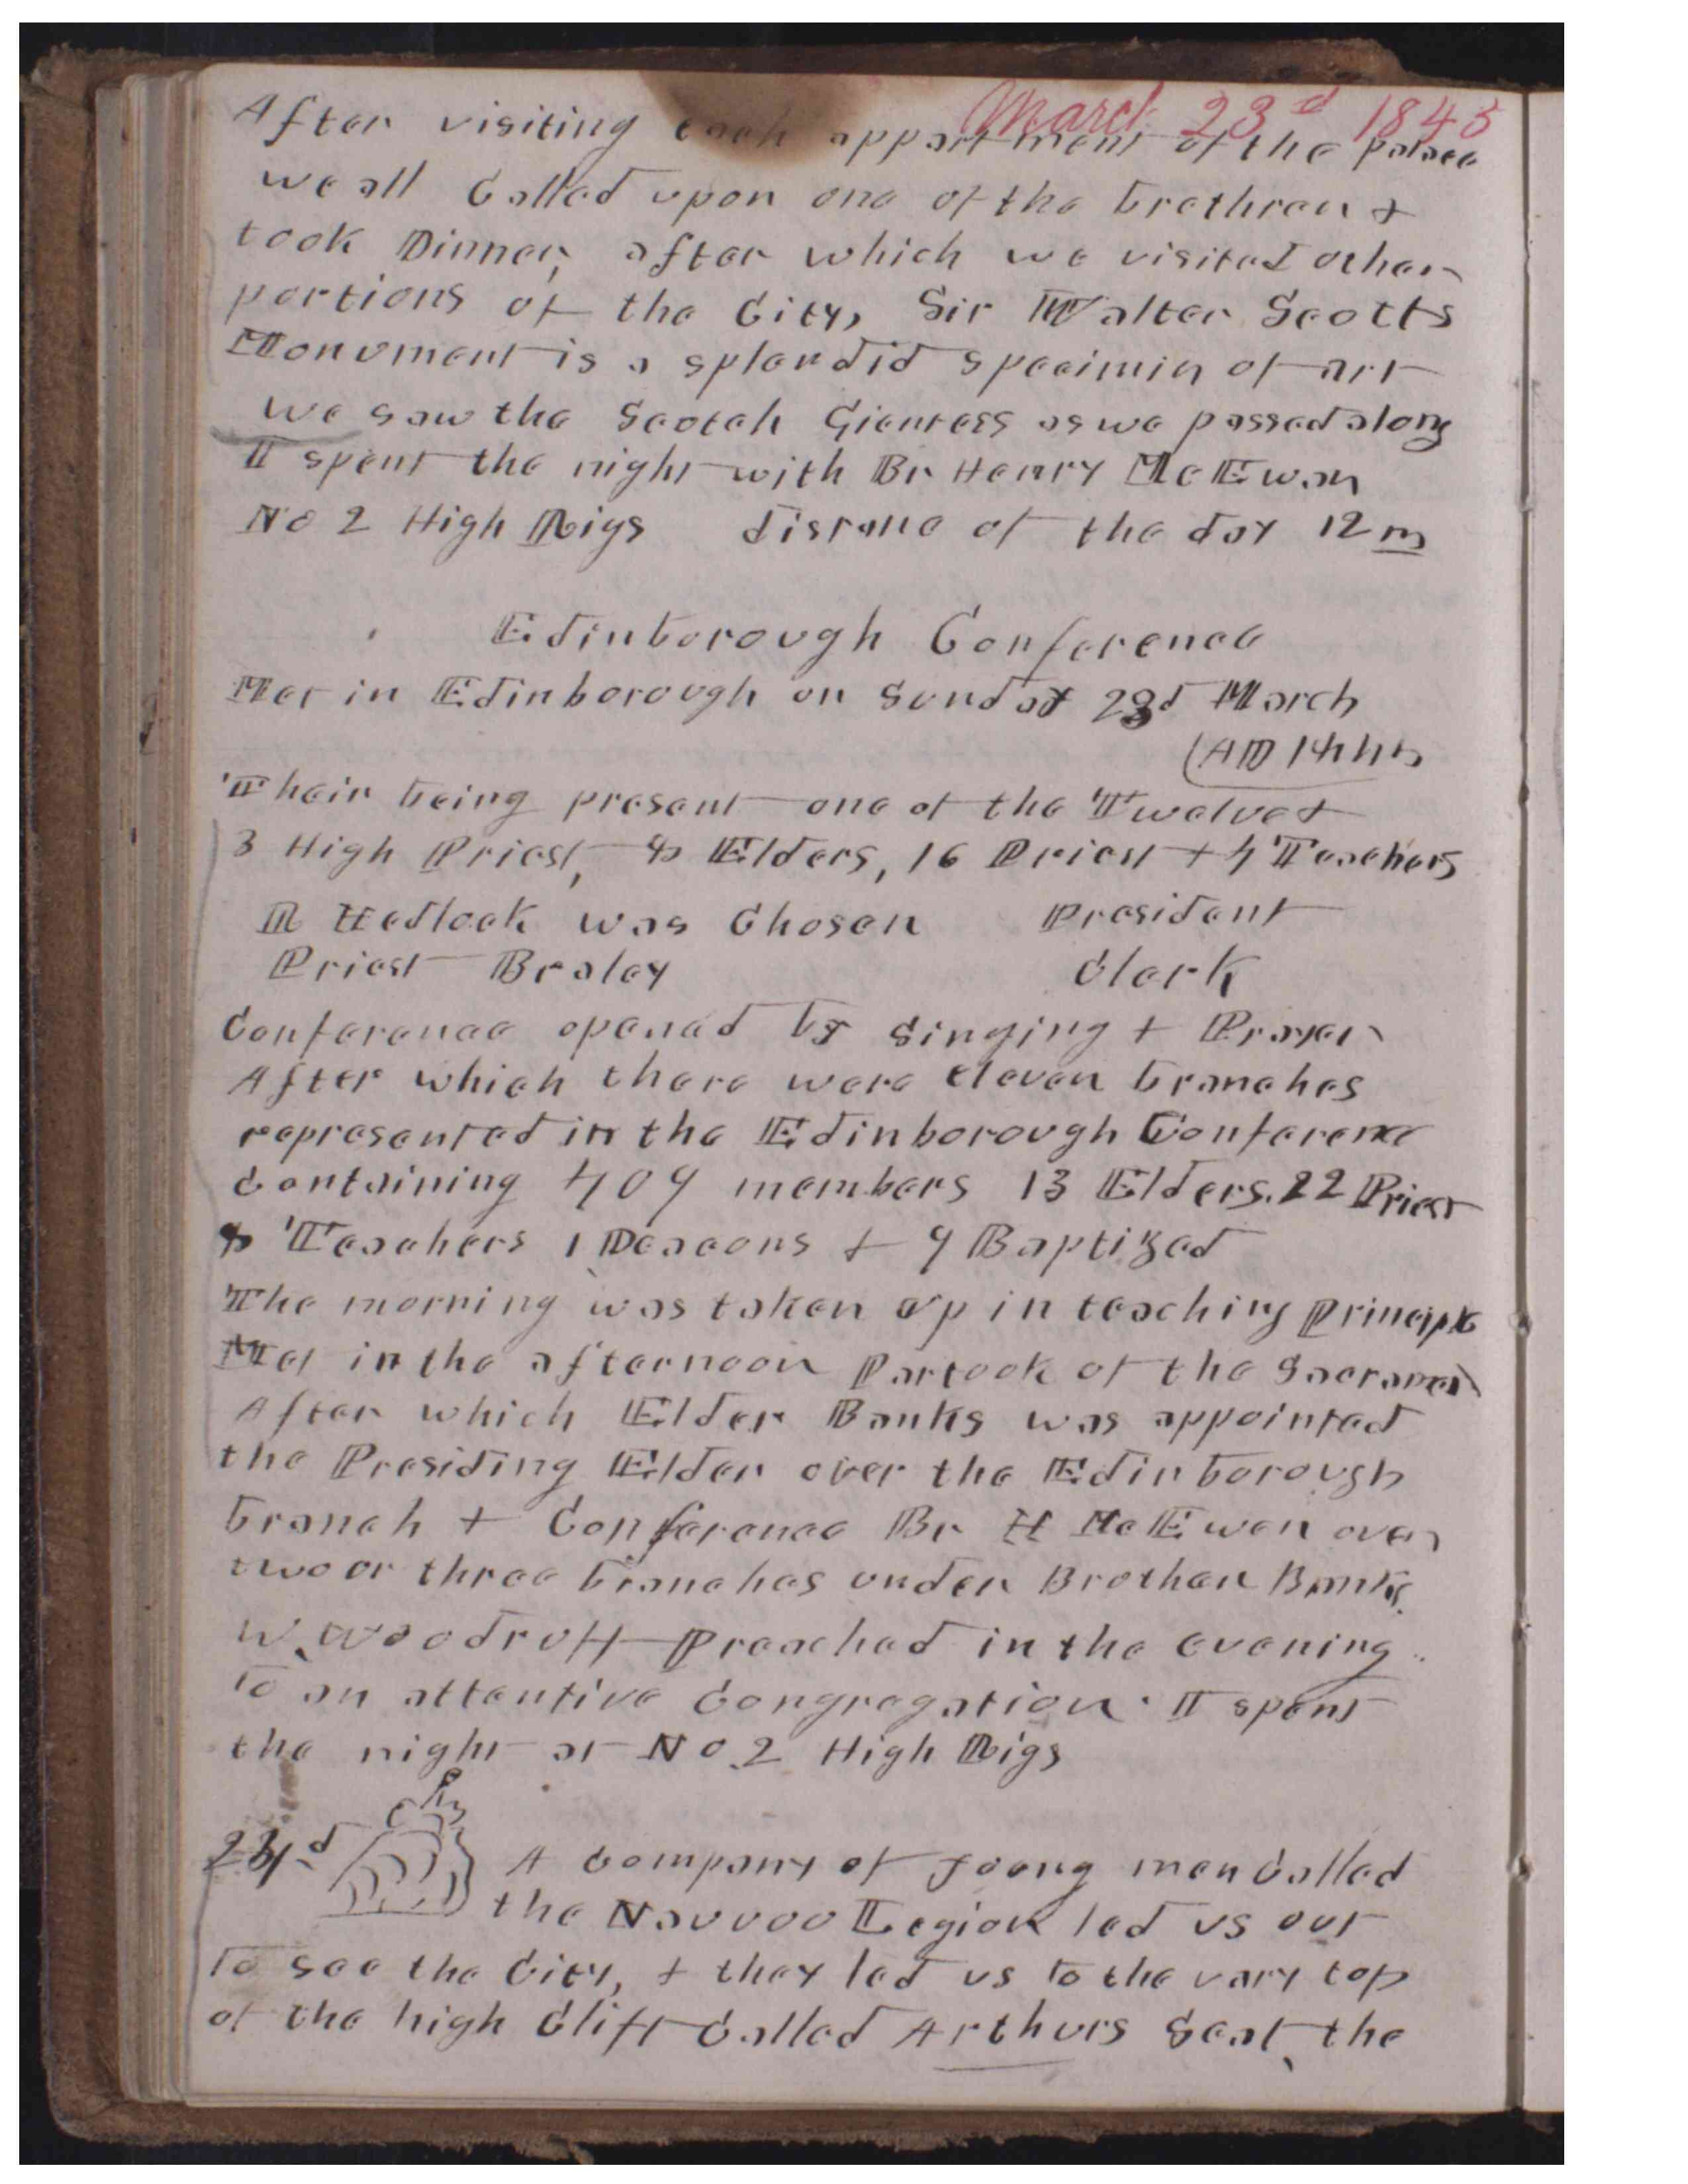 March 23d 1845
After visiting each appartment of the palace
we all Called upon one of the brethren &
took Dinner, after which we visited other
portions of the City, Sir Walter Scotts
Monument is a splendid specimin of art
we saw the Scotch Gientess as we passed along
I spent the night with Br Henry McEwan
No 2 High Rigs distane of the day 12 m
Edinborough Conference
Met in Edinborough on Sunday 23d March
(AD 1845
Their being present one of the Twelve &
3 High Priest, 8 Elders, 16 Priest & 4 Teachers
R Hedlock was Chosen President
Priest Braley Clerk
Conference opened by Singing & Prayer
After which there were eleven branches
represented in the Edinborough Conference
Containing 409 members 13 Elders. 22 Priest
8 Teachers 1 Deacons & 9 Baptized
The morning was taken up in teaching Principle
Met in the afternoon Partook of the Sacrament
After which Elder Banks was appointed
the Presiding Elder over the Edinborough
branch & Conference Br H McEwen over
two or three branches under Brother Banks
W. Woodruff Preached in the evening
to an attentive Congregation. I spent
the night at No. 2 High Rigs
24d A Company of young men Called
the Nauvoo Legion led us out
to see the City, & they led us to the vary top
of the high Clift Called Arthurs Seat, the